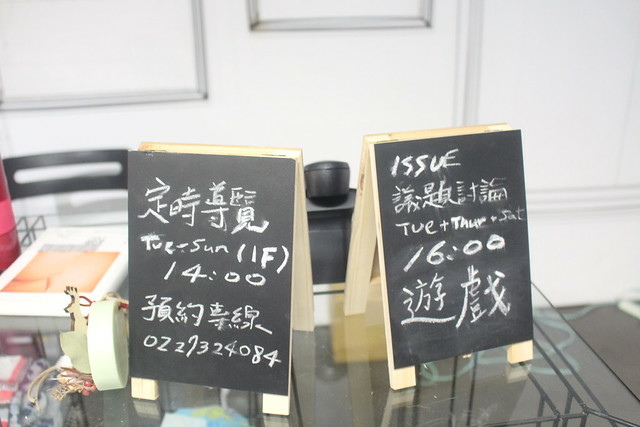 定時導覽
Tue-Sun (1F)
14:00
預約專線
0227324084
ISSUE
議題討論
Tue+Thur+Sat
16:00
遊戲